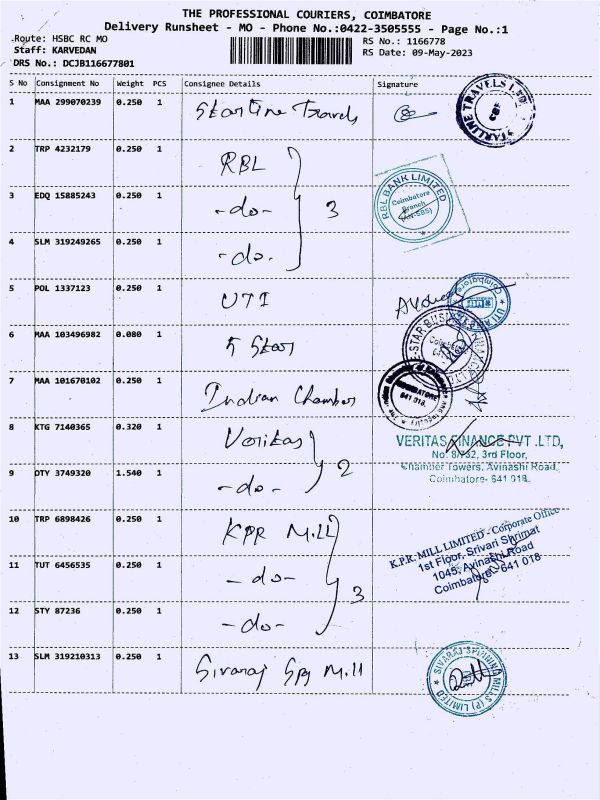 THE PROFESSIONAL COURIERS, COIMBATORE
Delivery Runsheet - MO - Phone No.:0422-3505555 - Page No.:1
Route: HSBC RC MO
RS No.: 1166778
Staff: KARVEDAN
RS Date: 09-May-2023
DRS No.: DCJB116677801
S No Consignment No Weight PCS Consignee Details Signature
1 MAA 299070239 0.250 1 Starline Travels STARLINE TRAVELS
2 TRP 4232179 0.250 1 RBL
3 EDQ 15885243 0.250 1 -do- 3 RBL BANK LIMITED Coimbatore Branch
4 SLM 319249265 0.250 1 -do-
5 POL 1337123 0.250 1 UTI
6 MAA 103496982 0.080 1 5 Star
7 MAA 101670102 0.250 1 Indian Chamber 641 018.
8 KTG 7140365 0.320 1 Veritas
VERITAS FINANCE PVT .LTD,
No: 8/732, 3rd Floor,
Chamber Towers, Avinashi Road,
Coimbatore- 641 018.
9 DTY 3749320 1.540 1 -do- 2
10 TRP 6898426 0.250 1 KPR Mill
K.P.R. MILL LIMITED - Corporate Office
1st Floor, Srivari Shrimat
1045, Avinashi Road
Coimbatore - 641 018
11 TUT 6456535 0.250 1 -do- 3
12 STY 87236 0.250 1 -do-
13 SLM 319210313 0.250 1 Sivaraj Spg Mill SIVARAJ SPINNING MILLS (P) LIMITED